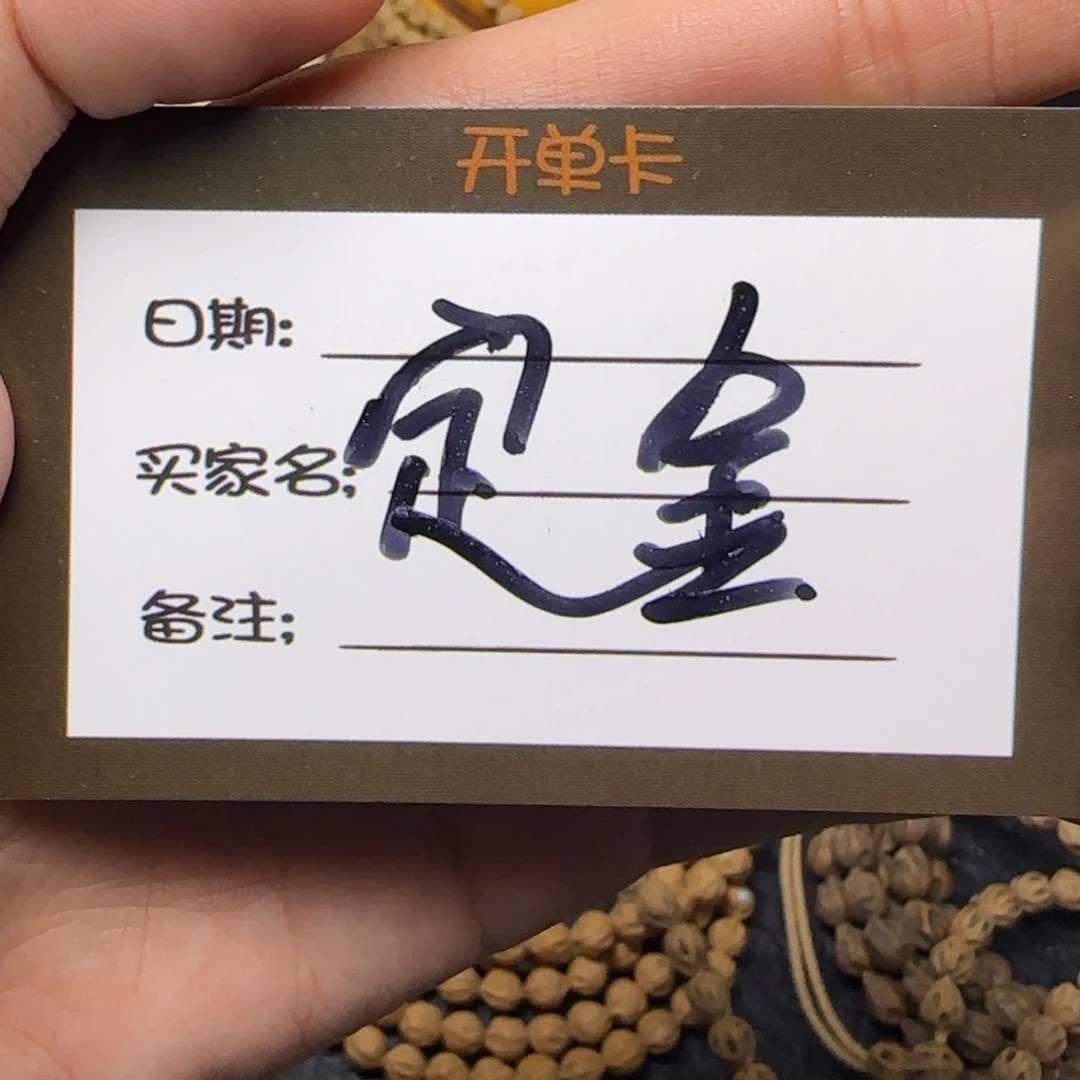 开单卡
日期:
买家名;
定金
备注;